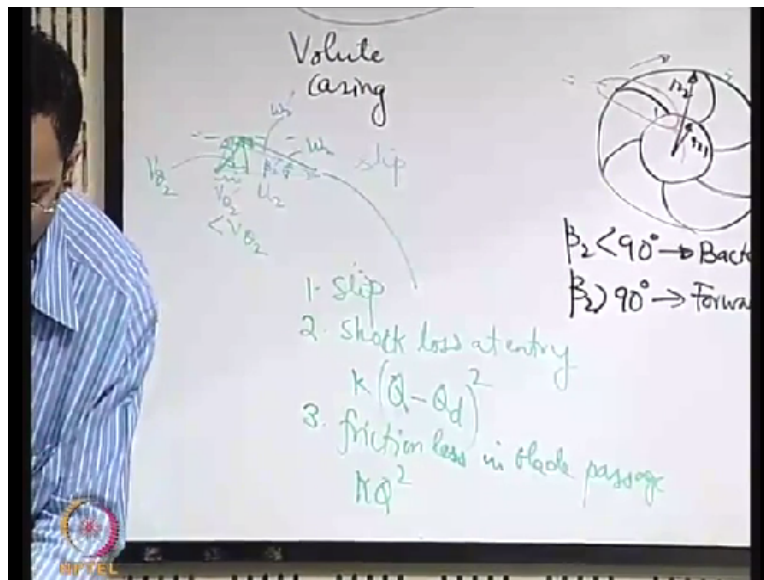 Volute
casing
slip
V₂
U₂
< Vθ₂
r₂
r₁
β₂ < 90° →
β₂ > 90° →
1. slip
2. shock loss at entry
K(Q - Qd)²
3. friction loss in blade passage
KQ²
NPTEL